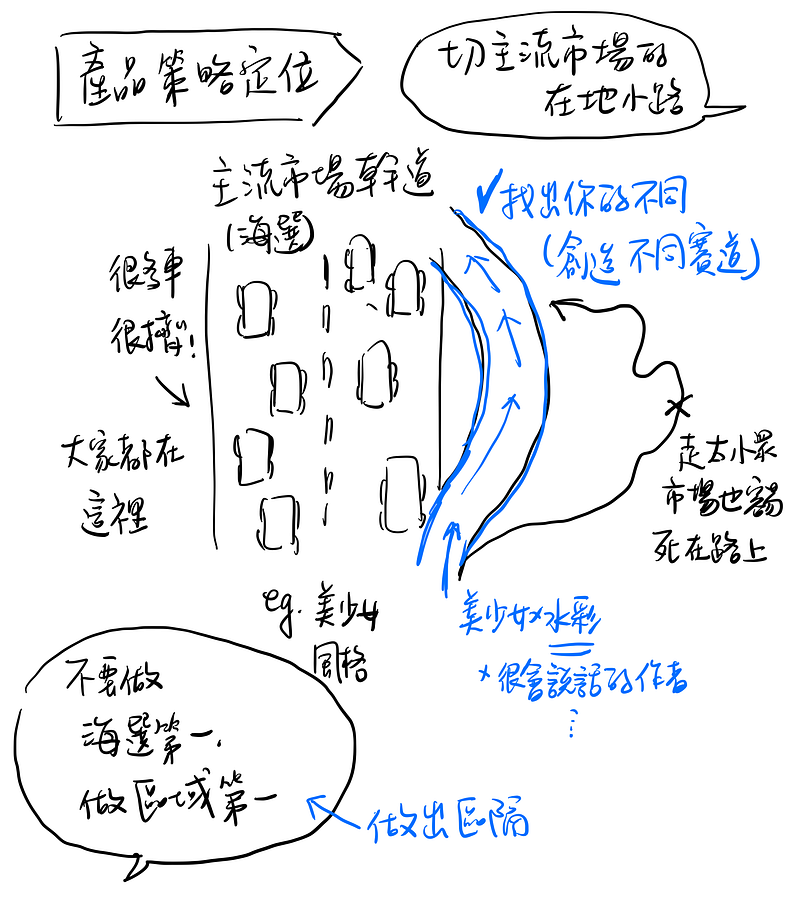 產品策略定位
切主流市場的
在地小路
主流市場幹道
(海選)
很多車
很擠!
大家都在
這裡
✓找出你的不同
(創造不同賽道)
走太小眾
市場也容易
死在路上
eg. 美少女
風格
美少女×水彩
×很會說話的作者
⋮
不要做
海選第一,
做區域第一
做出區隔